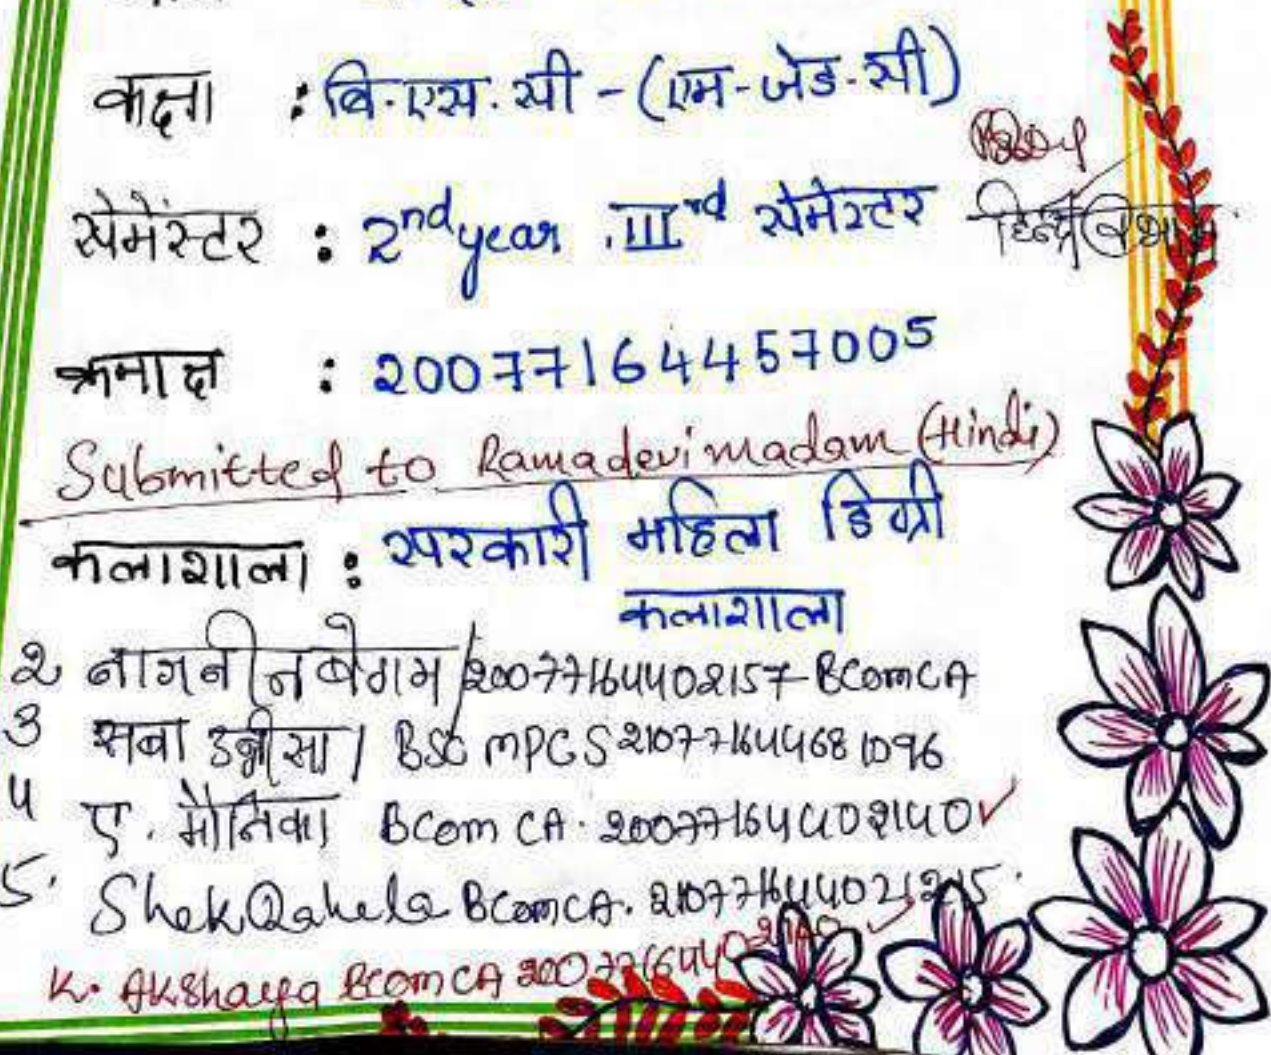 कक्षा : बि.एस.सी - (एम-जेड-सी)
सेमेंस्टर : 2nd year .IIIrd सेमेस्टर
हिन्दी विभाग
क्रमाक्ष : 20077164457005
Submitted to Ramadevi madam (Hindi)
कलाशाला : सरकारी महिला डिग्री
कलाशाला
2 नाजनीन बेगम / 20077164402157 - BComCA
3 सबा उन्नीसा / BSC MPCS 210771644681096
4 ए. मौनिका BCom CA. 20077164402140
5. Shek BComCA.
K. Akshaya BComCA